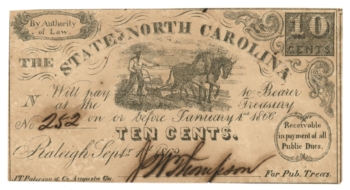 By Authority
of Law.
10
CENTS
THE STATE OF NORTH CAROLINA
Will pay to Bearer
N at the Treasury
No. 252 on or before January 1st 1866
TEN CENTS.
Receivable
in payment of all
Public Dues.
Raleigh Sept. 1st 1862
For Pub. Treas.
J.T. Paterson & Co. Augusta Ga.